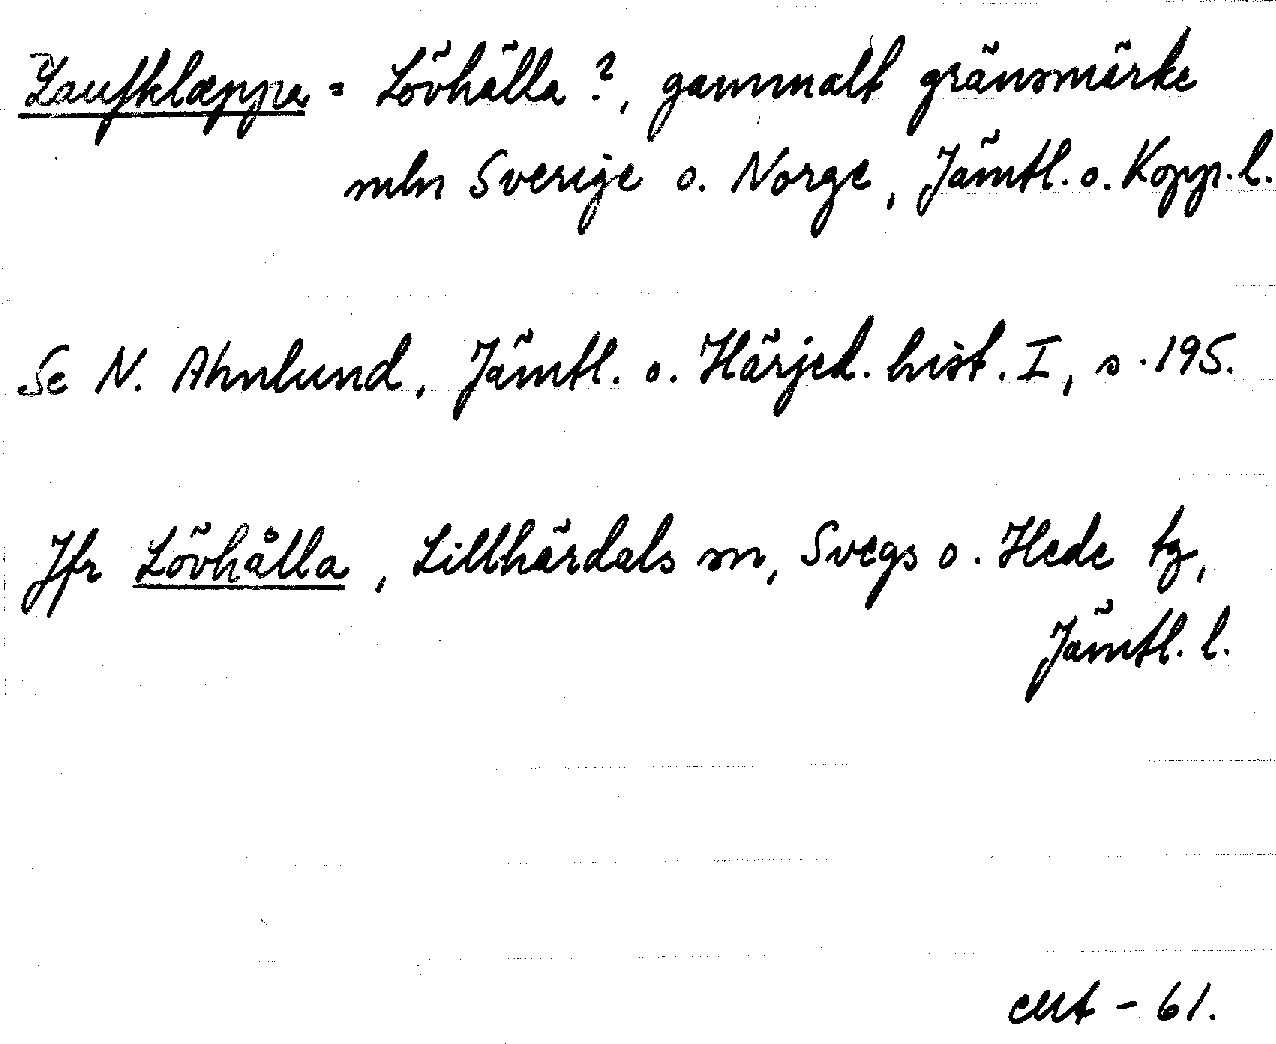 Laufklæppe = Lövhälla?, gammalt gränsmärke
mln Sverige o. Norge, Jämtl. o. Kopp. l.
Se N. Ahnlund, Jämtl. o. Härjed. hist. I, s. 195.
Jfr Lövhålla, Lillhärdals sn, Svegs o. Hede tg,
Jämtl. l.
- 61.